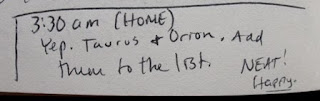 3:30 am (HOME)
Yep. Taurus & Orion. Add
them to the list. NEAT!
Happy.